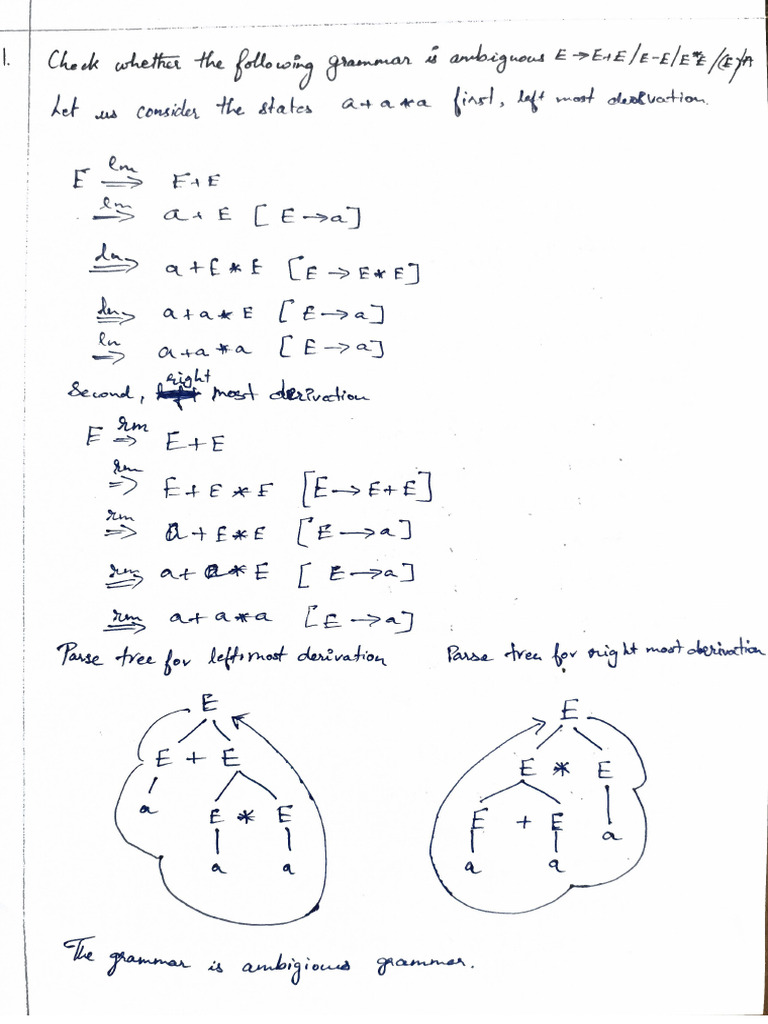 1. Check whether the following grammar is ambiguous E→E+E/E-E/E*E/(E)/A
Let us consider the states a+a*a first, left most derivation.
E lm⇒ E+E
lm⇒ a+E [E→a]
lm⇒ a+E*E [E→E*E]
lm⇒ a+a*E [E→a]
lm⇒ a+a*a [E→a]
Second, right most derivation
E rm⇒ E+E
rm⇒ E+E*E [E→E+E]
rm⇒ a+E*E [E→a]
rm⇒ a+a*E [E→a]
rm⇒ a+a*a [E→a]
Parse tree for left most derivation
Parse tree for right most derivation
E
E + E
a
E * E
a a
E
E * E
E + E
a
a a
The grammar is ambigious grammer.